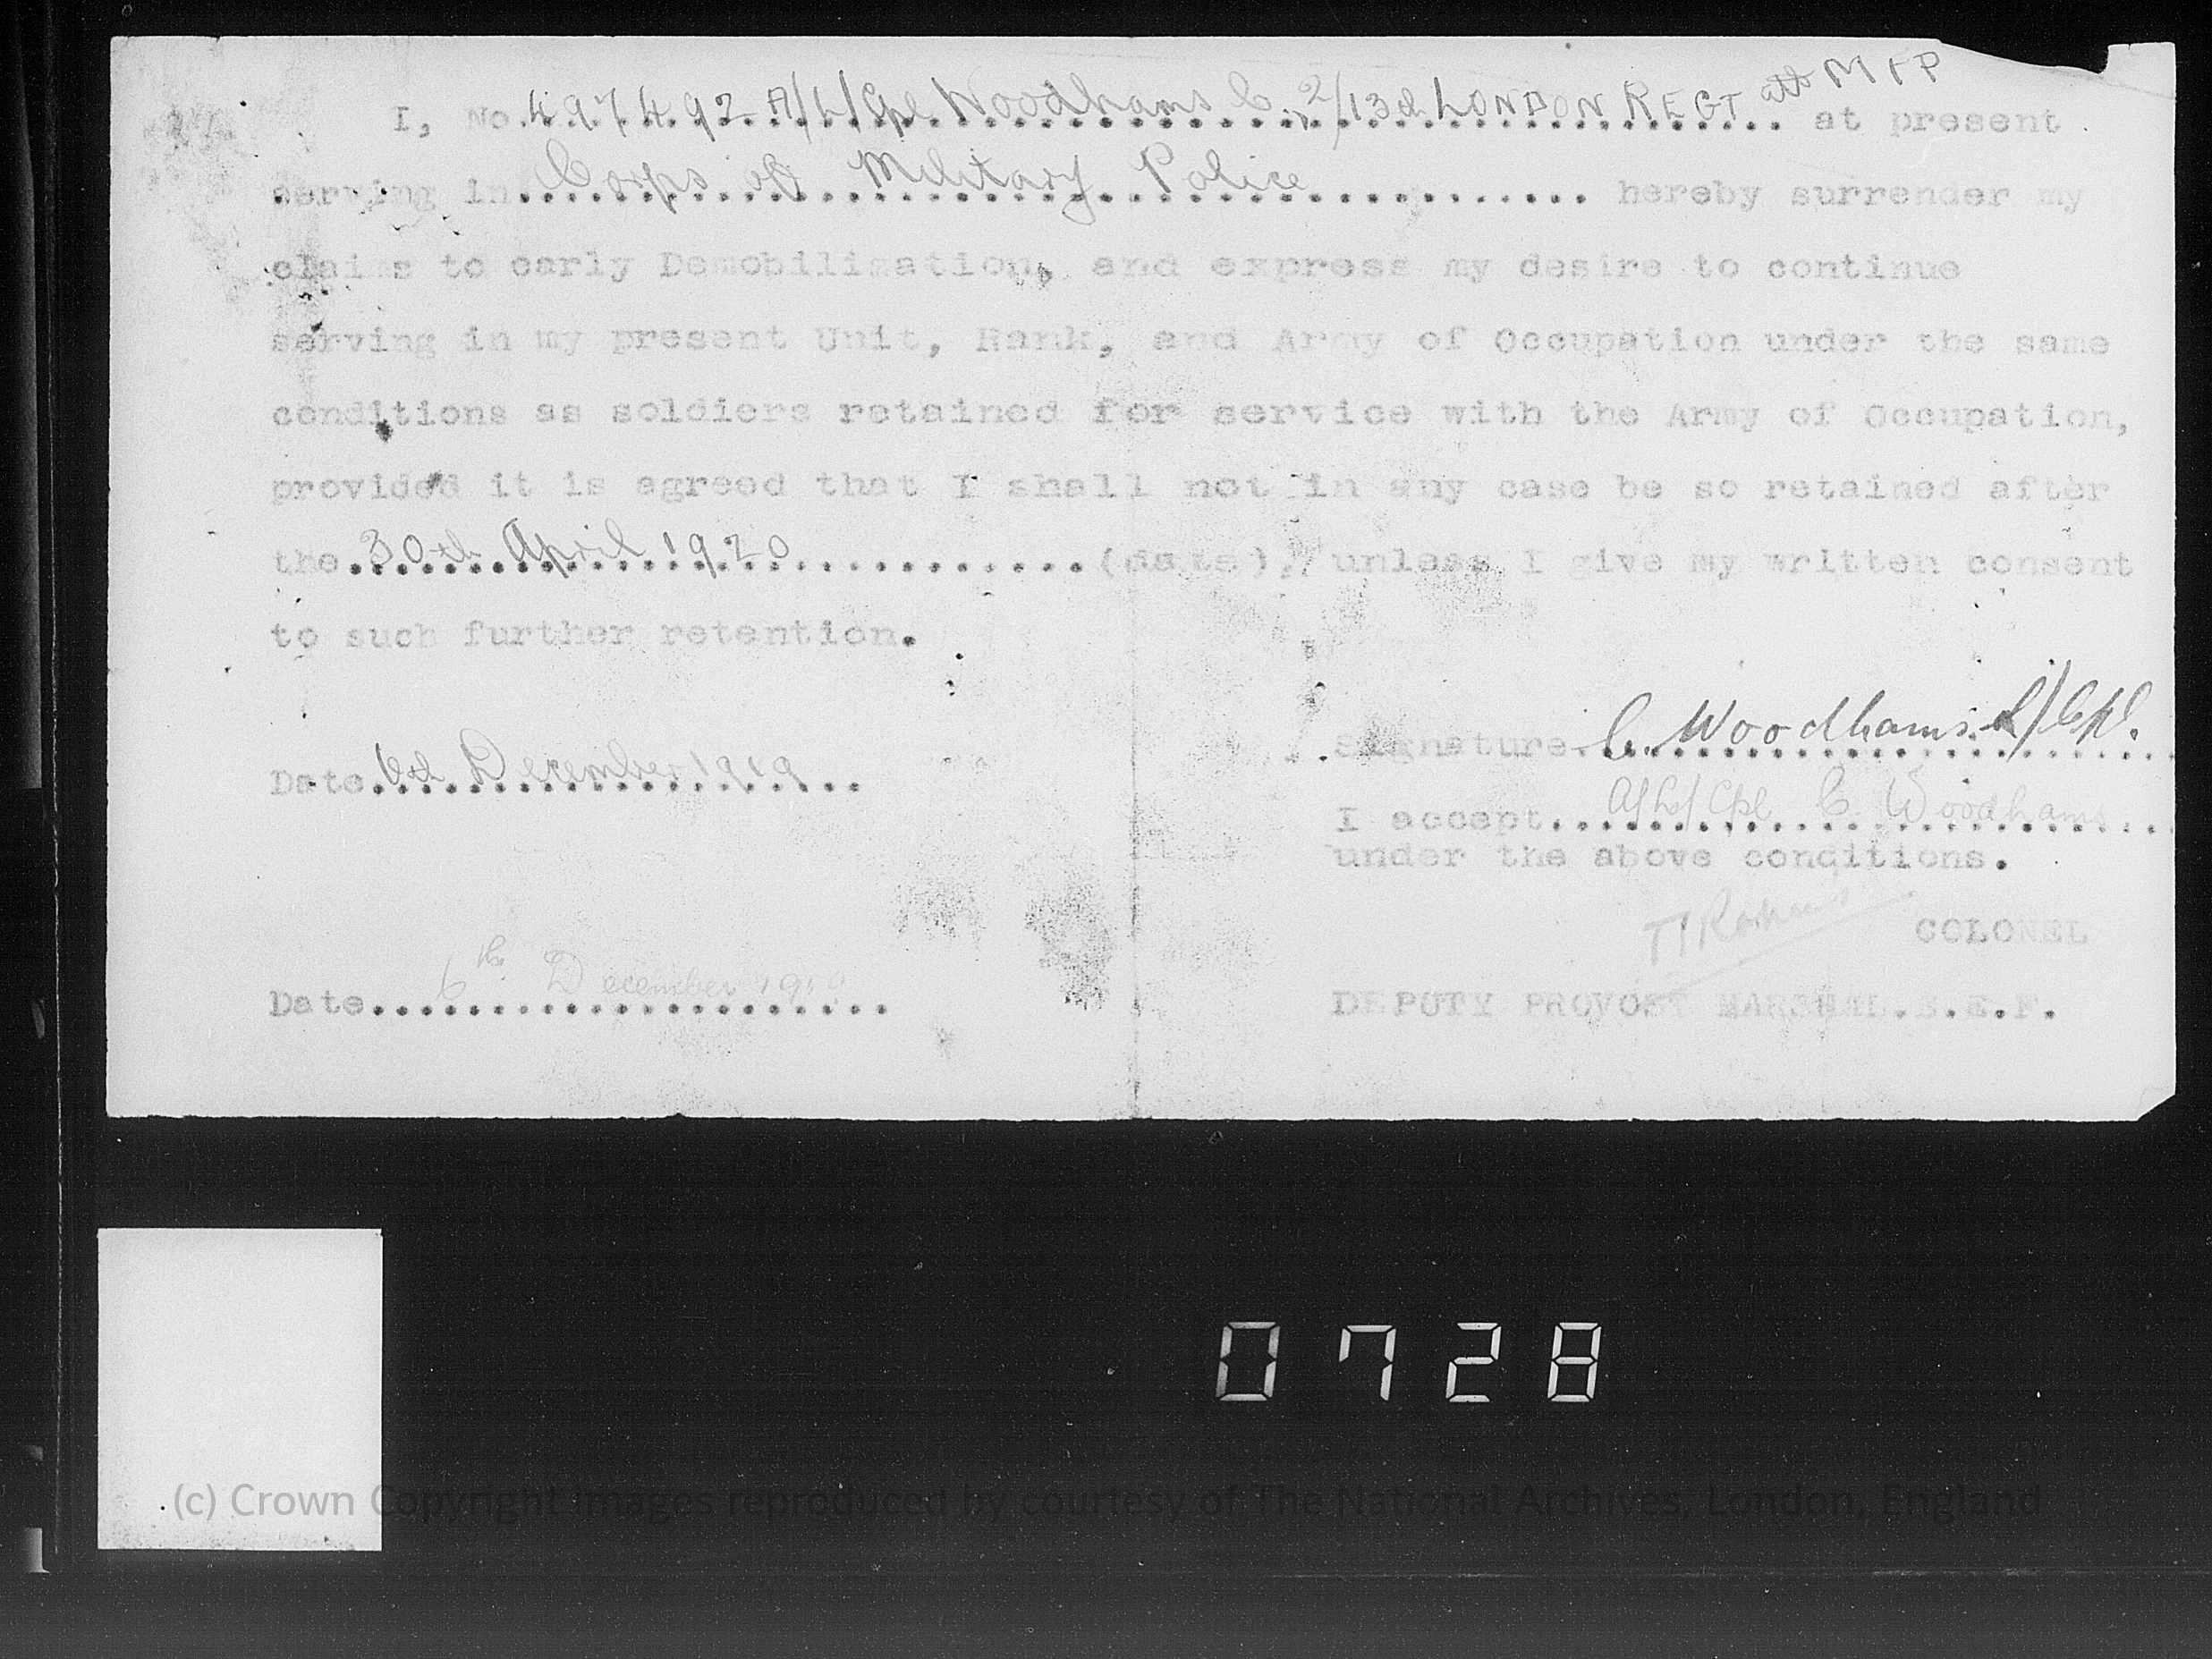 I, No. 497492 A/L/Cpl Woodhams C. 2/13th LONDON REGT att M F P at present
serving in Corps of Military Police hereby surrender my
claims to early Demobilization, and express my desire to continue
serving in my present Unit, Rank, and Army of Occupation under the same
conditions as soldiers retained for service with the Army of Occupation,
provided it is agreed that I shall not in any case be so retained after
the 30th April 1920 (date), unless I give my written consent
to such further retention.
Signature C. Woodhams L/Cpl.
Date 6th December 1919
I accept A/L/Cpl C Woodhams
under the above conditions.
COLONEL
Date 6th December 1919
DEPUTY PROVOST MARSHAL. .E.F.
0728
(c) Crown Copyright Images reproduced by courtesy of The National Archives, London, England